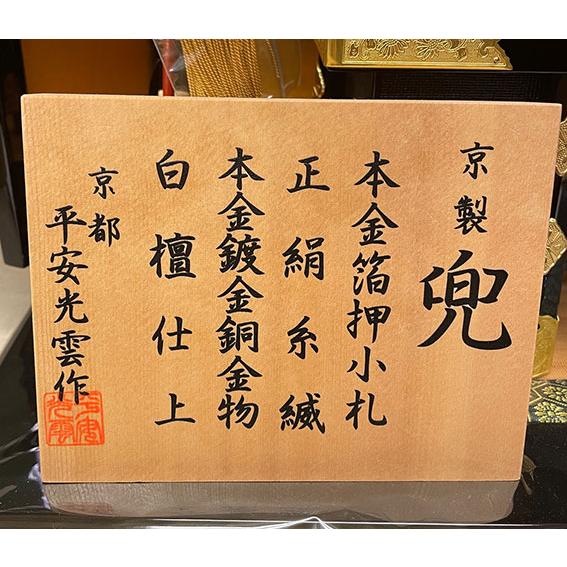 京製
兜
本金箔押小札
正絹糸縅
本金鍍金銅金物
白檀仕上
京都
平安光雲作